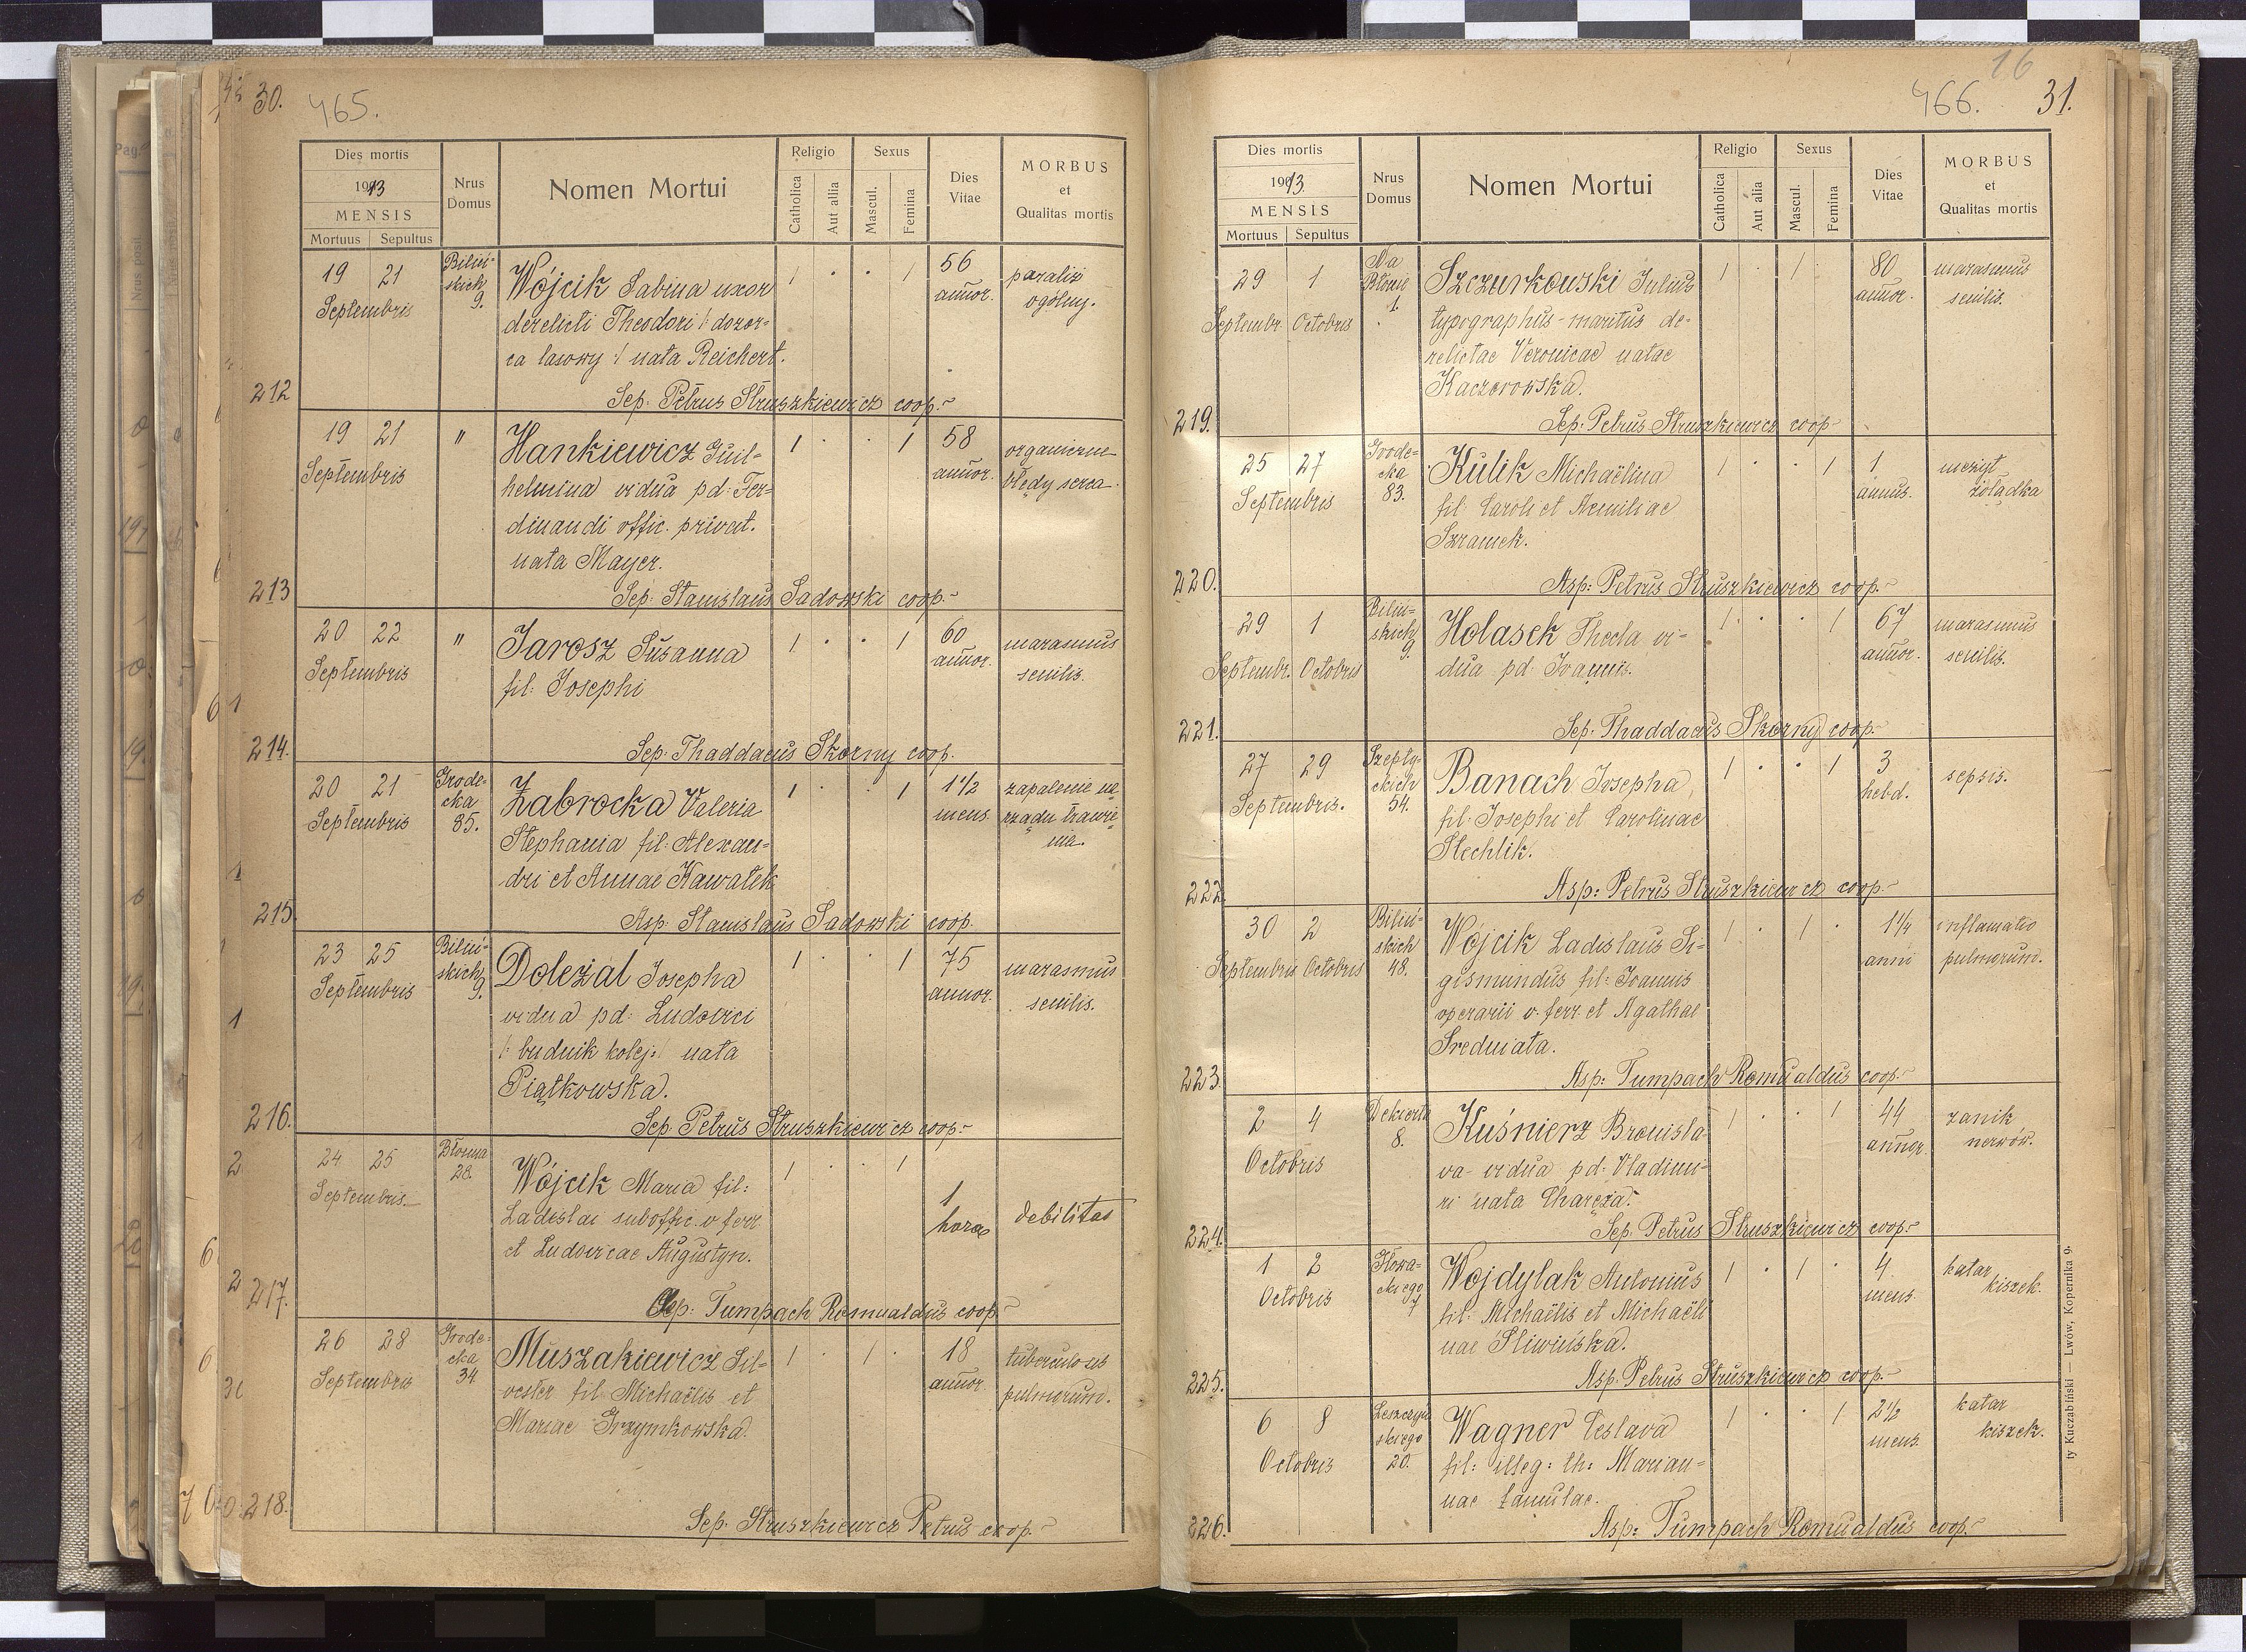 30. 465.
Dies mortis
1913
MENSIS
Mortuus Sepultus
Nrus Domus
Nomen Mortui
Religio
Catholica
Aut alia
Sexus
Mascul.
Femina
Dies Vitae
MORBUS
et
Qualitas mortis
212
19 21
Septembris
Biliń-
skich
9.
Wójcik Sabina uxor
derelicti Theodori /: dozor-
ca lasowy :/ nata Reichert.
1 . . 1
56
annor.
paraliż
ogólny.
Sep: Petrus Struszkiewicz coop.
213
19 21
Septembris
"
Hankiewicz Guil-
helmina vidua pd: Fer-
dinandi offic. privat.
nata Mayer.
1 . . 1
58
annor.
organiczne
błędy serca.
Sep: Stanislaus Sadowski coop.
214.
20 22
Septembris
"
Jarosz Susanna
fil: Josephi
1 . . 1
60
annor.
marasmus
senilis.
Sep: Thaddaeus Skorny coop.
215.
20 21
Septembris
Grode-
cka
85.
Zabrocka Valeria
Stephania fil: Alexan-
dri et Annae Kawałek
1 . . 1
1 1/2
mens.
zapalenie na-
rządu trawie-
nia.
Asp: Stanislaus Sadowski coop.
216.
23 25
Septembris
Biliń-
skich
9.
Doleżal Josepha
vidua pd: Ludovici
/: budnik kolej :/ nata
Piątkowska.
1 . . 1
75
annor.
marasmus
senilis.
Sep: Petrus Struszkiewicz coop.
217.
24 25
Septembris
Błonna
28.
Wójcik Maria fil:
Ladislai suboffic. v. ferr.
et Ludovicae Augustyn.
1 . . 1
1
hora
debilitas
Sep: Tumpach Romualdus coop.
218.
26 28
Septembris
Grode-
cka
34.
Muszakiewicz Sil-
vester fil: Michaëlis et
Mariae Grzymkowska.
1 . 1 .
18
annor.
tuberculosis
pulmonum.
Sep: Struszkiewicz Petrus coop.
16
466. 31.
Dies mortis
1913.
MENSIS
Mortuus Sepultus
Nrus Domus
Nomen Mortui
Religio
Catholica
Aut alia
Sexus
Mascul.
Femina
Dies Vitae
MORBUS
et
Qualitas mortis
219.
29 1
Septembr. Octobris
Na
Błonie
1.
Szczurkowski Julius
typographus - maritus de-
relictae Veronicae natae
Kaczorowska.
1 . 1 .
80
annor.
marasmus
senilis.
Sep: Petrus Struszkiewicz coop.
220.
25 27
Septembris
Grode-
cka
83.
Kulik Michaëlina
fil: Caroli et Aemiliae
Szramek.
1 . . 1
1
annus.
nieżyt
żołądka
Asp: Petrus Struszkiewicz coop.
221.
29 1
Septembr. Octobris
Biliń-
skich
9.
Holasek Thecla vi-
dua pd: Joannis.
1 . . 1
67
annor.
marasmus
senilis.
Sep: Thaddaeus Skorny coop.
222.
27 29
Septembris.
Szepty-
ckich
54.
Banach Josepha
fil: Josephi et Carolinae
Stechlik.
1 . . 1
3
hebd.
sepsis.
Asp: Petrus Struszkiewicz coop.
223.
30 2
Septembris Octobris
Biliń-
skich
48.
Wójcik Ladislaus Si-
gismundus fil: Joannis
operarii v. ferr. et Agathae
Średniata.
1 . 1 .
1 1/4
anni
inflamatio
pulmonum.
Asp: Tumpach Romualdus coop.
224.
2 4
Octobris
Dekierta
8.
Kuśnierz Bronisla-
va - vidua pd: Vladimi-
ri nata Charęza.
1 . . 1
44
annor.
zanik
nerwów.
Sep: Petrus Struszkiewicz coop.
225.
1 2
Octobris
Głowa-
ckiego
7
Wojdylak Antonius
fil: Michaëlis et Michaëli-
nae Śliwińska.
1 . 1 .
4
mens.
katar
kiszek.
Asp: Petrus Struszkiewicz coop.
226.
6 8
Octobris
Leszczyń-
skiego
20.
Wagner Ceslava
fil: illeg: th: Marian-
nae famulae.
1 . . 1
2 1/2
mens.
katar
kiszek.
Asp: Tumpach Romualdus coop.
ty Kuczabiński — Lwów, Kopernika 9.